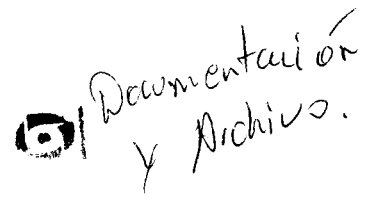 Documentación
y Archivo.